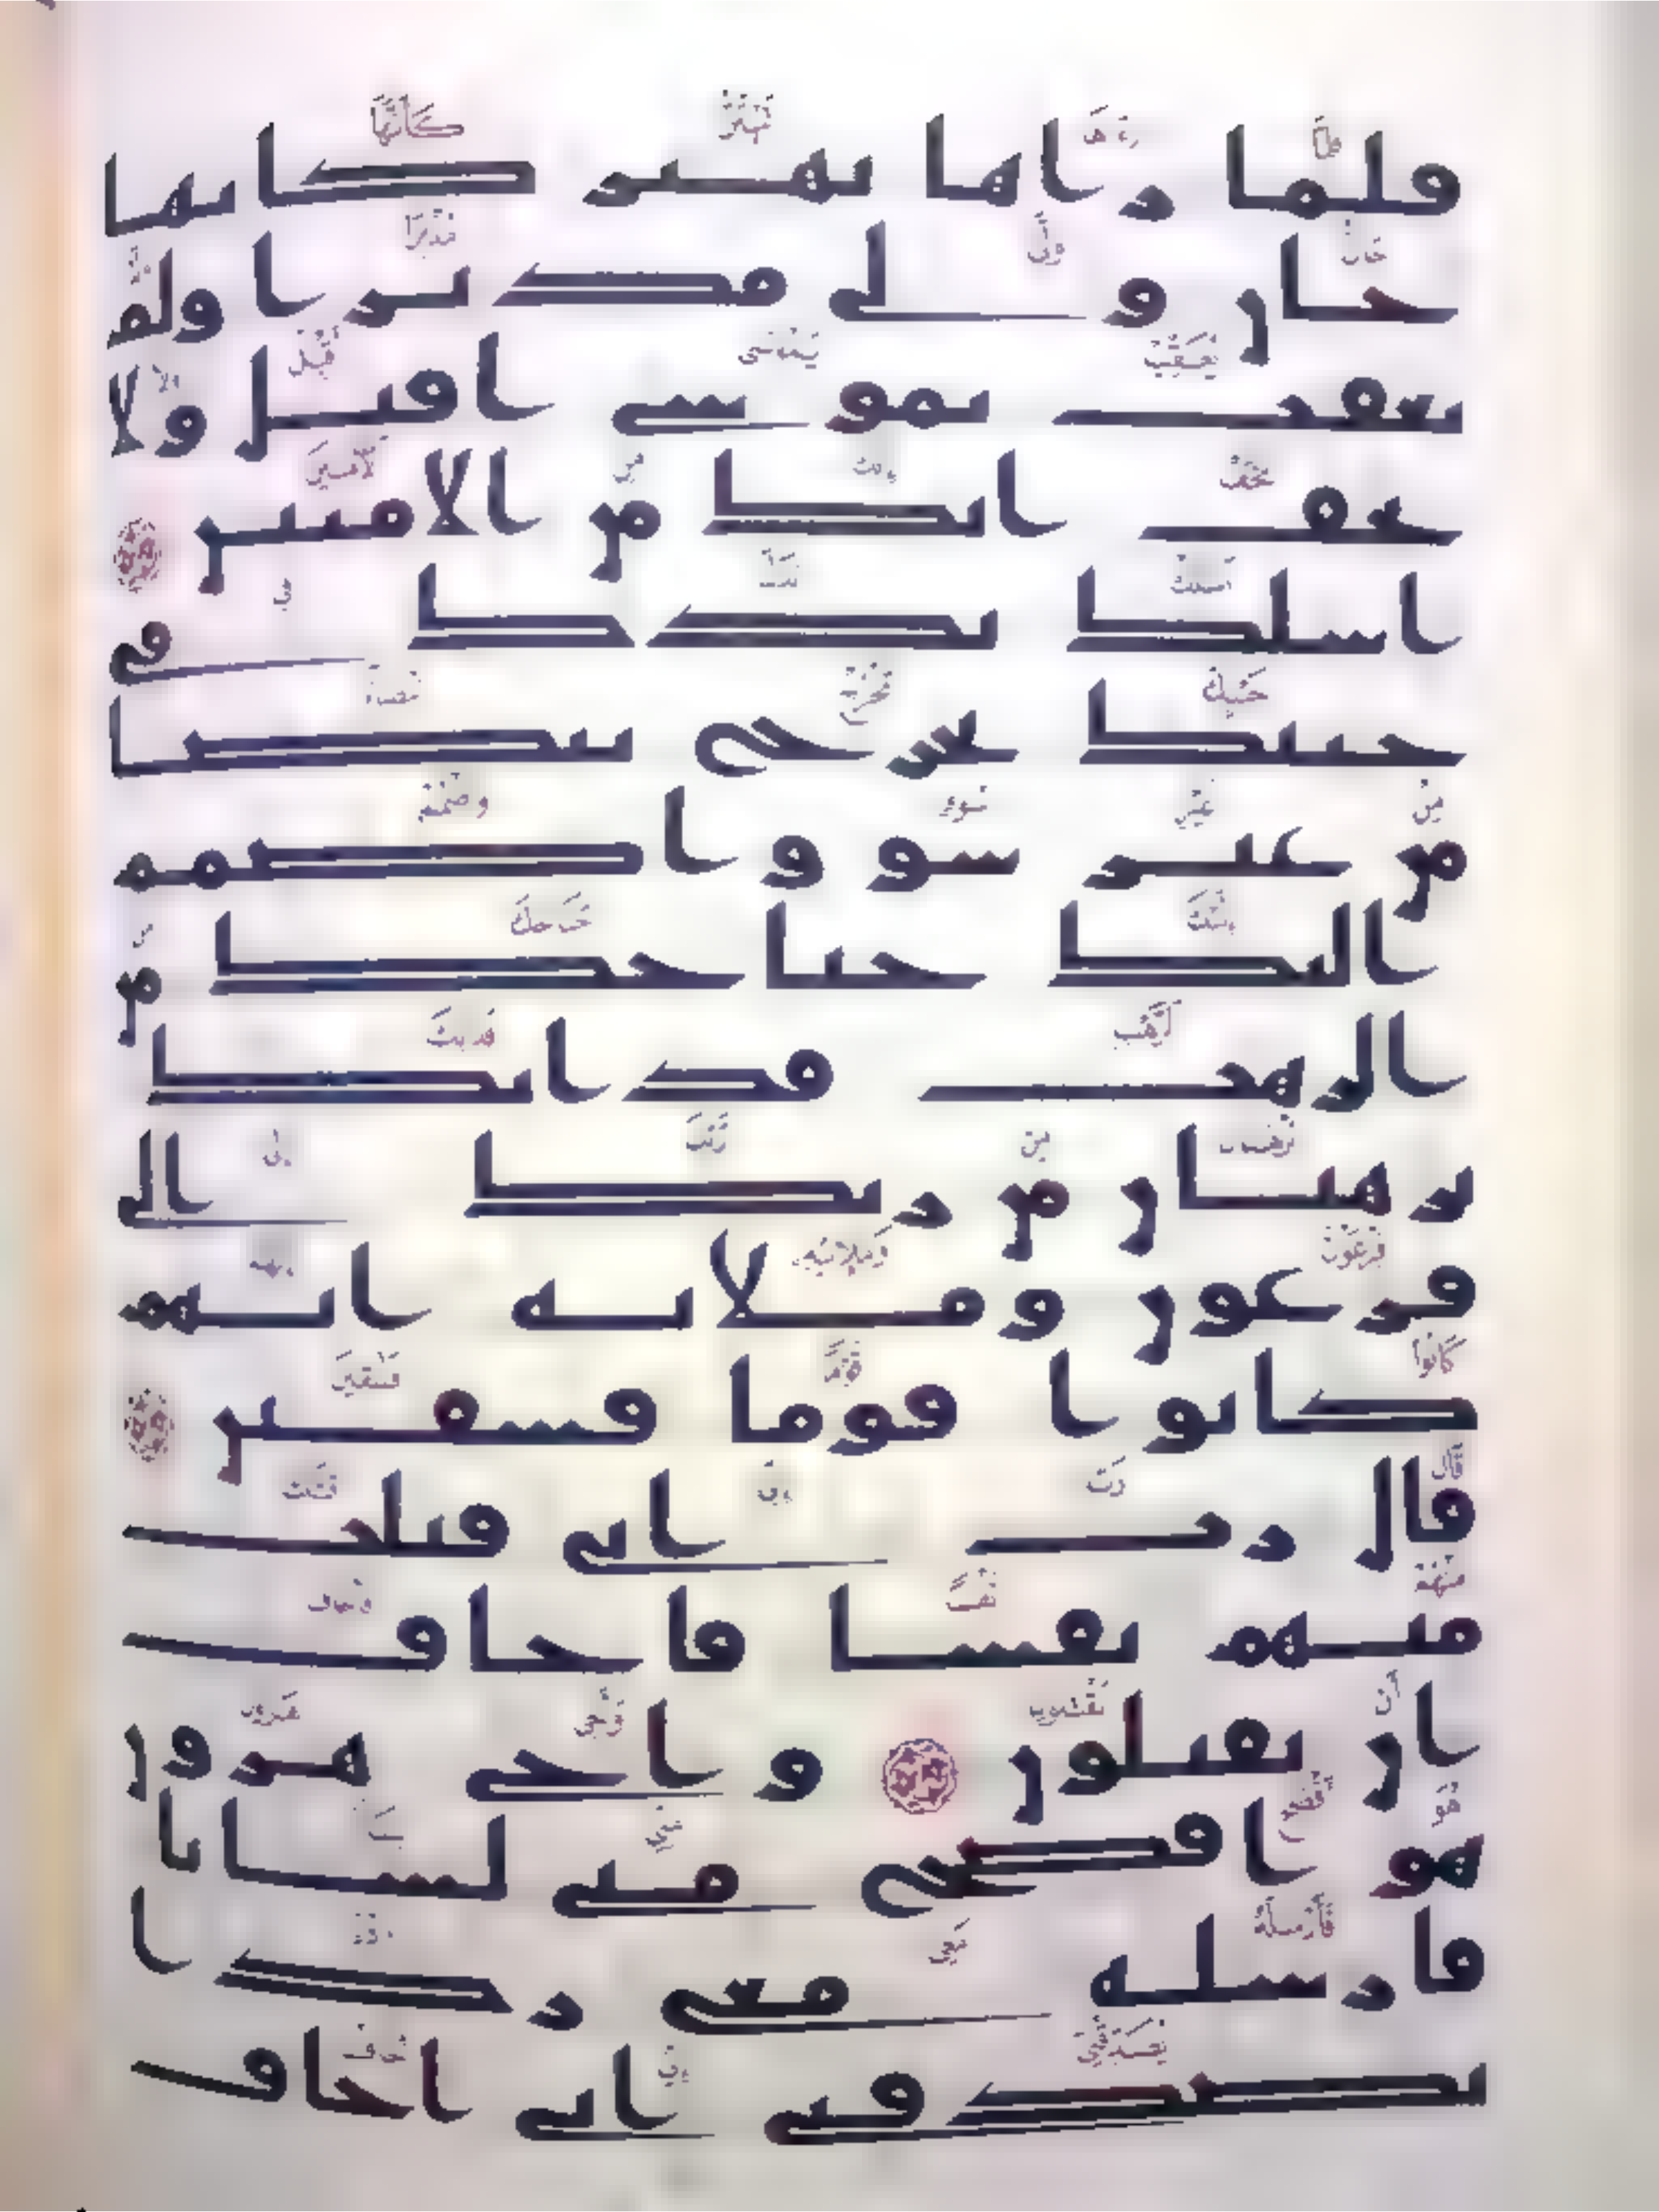 فلما راها تهتز كانها
جان ولى مدبرا ولم
يعقب يموسى اقبل ولا
تخف انك من الامنين
اسلك يدك في
جيبك تخرج بيضا
من غير سو واضمم
اليك جناحك من
الرهب فذانك
برهنان من ربك الى
فرعون وملائه انهم
كانوا قوما فسقين
قال رب اني قتلت
منهم نفسا فاخاف
ان يقتلون واخي هرون
هو افصح مني لسانا
فارسله معي ردا
يصدقني اني اخاف